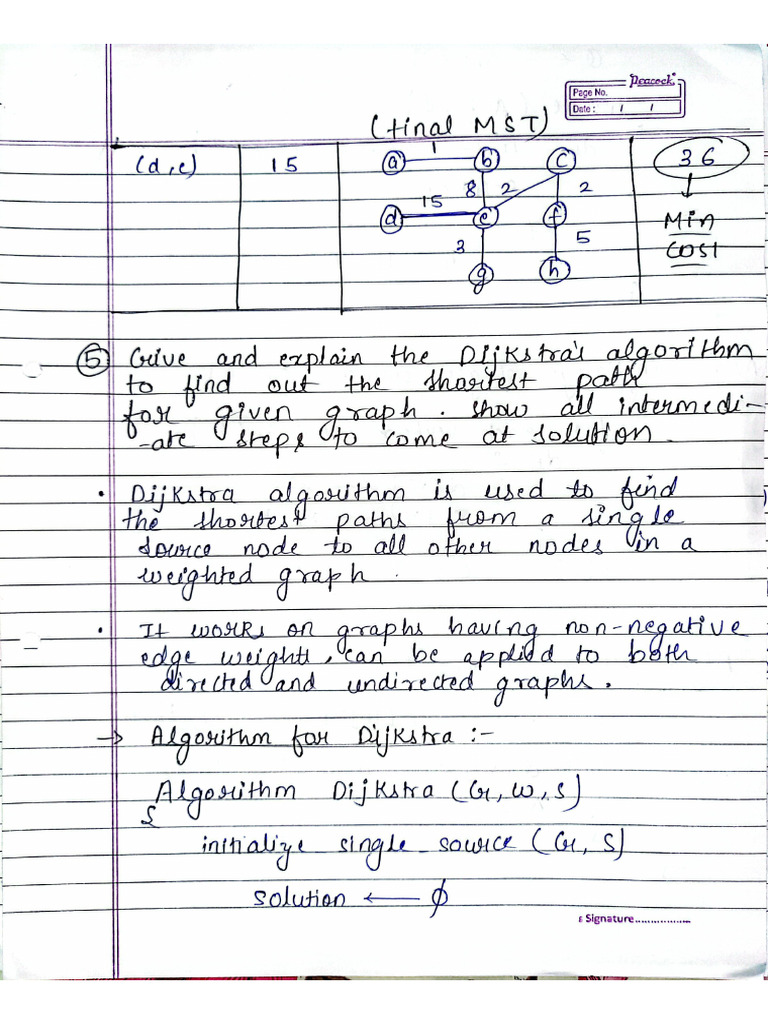 Peacock
Page No.
Date : / /
(final MST)
(d,e) 15 36
a 1 b c
8 2 2
15
d e f
3 5
g h
Min
COST
⑤ Give and explain the Dijkstra's algorithm
to find out the shortest path
for given graph. show all intermedi-
-ate steps to come at solution.
• Dijkstra algorithm is used to find
the shortest paths from a single
source node to all other nodes in a
weighted graph.
• It works on graphs having non-negative
edge weights, can be applied to both
directed and undirected graphs.
→ Algorithm for Dijkstra :-
Algorithm Dijkstra (G, w, s)
{
initialize single_source (G, S)
solution ← ϕ
ε Signature..................